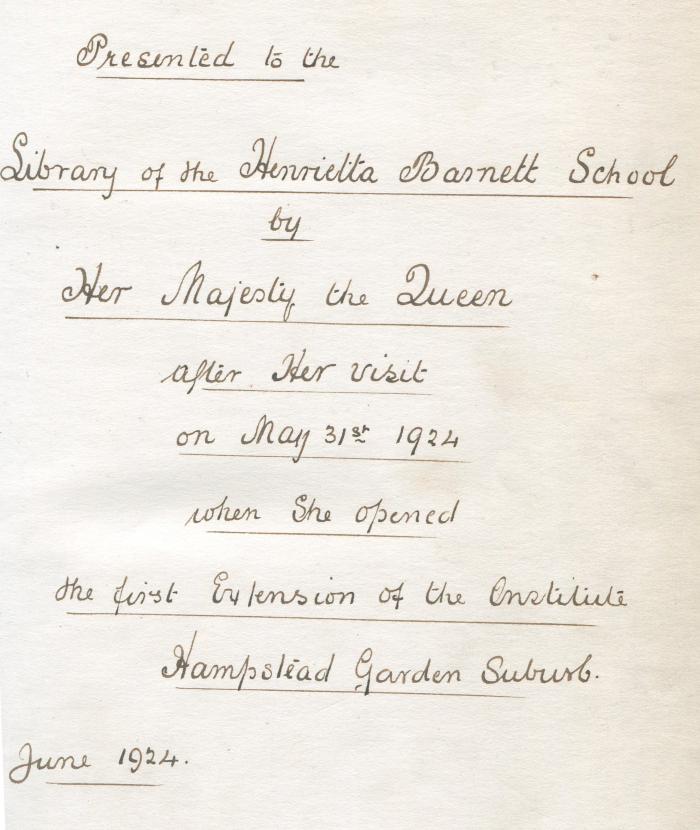 Presented to the
Library of the Henrietta Barnett School
by
Her Majesty the Queen
after Her visit
on May 31st 1924
when She opened
the first Extension of the Institute
Hampstead Garden Suburb.
June 1924.